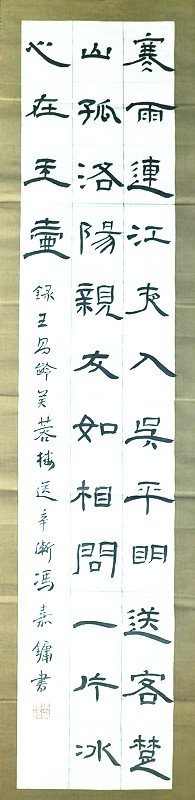 寒雨連江夜入吳平明送客楚
山孤洛陽親友如相問一片冰
心在玉壺
録王昌齡芙蓉樓送辛漸馮嘉鏞書